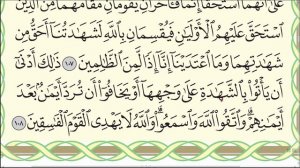 عَلَىٰٓ أَنَّهُمَا ٱسْتَحَقَّآ إِثْمًا فَـَٔاخَرَانِ يَقُومَانِ مَقَامَهُمَا مِنَ ٱلَّذِينَ
ٱسْتَحَقَّ عَلَيْهِمُ ٱلْأَوْلَيَـٰنِ فَيُقْسِمَانِ بِٱللَّهِ لَشَهَـٰدَتُنَآ أَحَقُّ مِن
شَهَـٰدَتِهِمَا وَمَا ٱعْتَدَيْنَآ إِنَّآ إِذًا لَّمِنَ ٱلظَّـٰلِمِينَ ١٠٧ ذَٰلِكَ أَدْنَىٰٓ
أَن يَأْتُوا۟ بِٱلشَّهَـٰدَةِ عَلَىٰ وَجْهِهَآ أَوْ يَخَافُوٓا۟ أَن تُرَدَّ أَيْمَـٰنٌۢ بَعْدَ
أَيْمَـٰنِهِمْ ۗ وَٱتَّقُوا۟ ٱللَّهَ وَٱسْمَعُوا۟ ۗ وَٱللَّهُ لَا يَهْدِى ٱلْقَوْمَ ٱلْفَـٰسِقِينَ ١٠٨